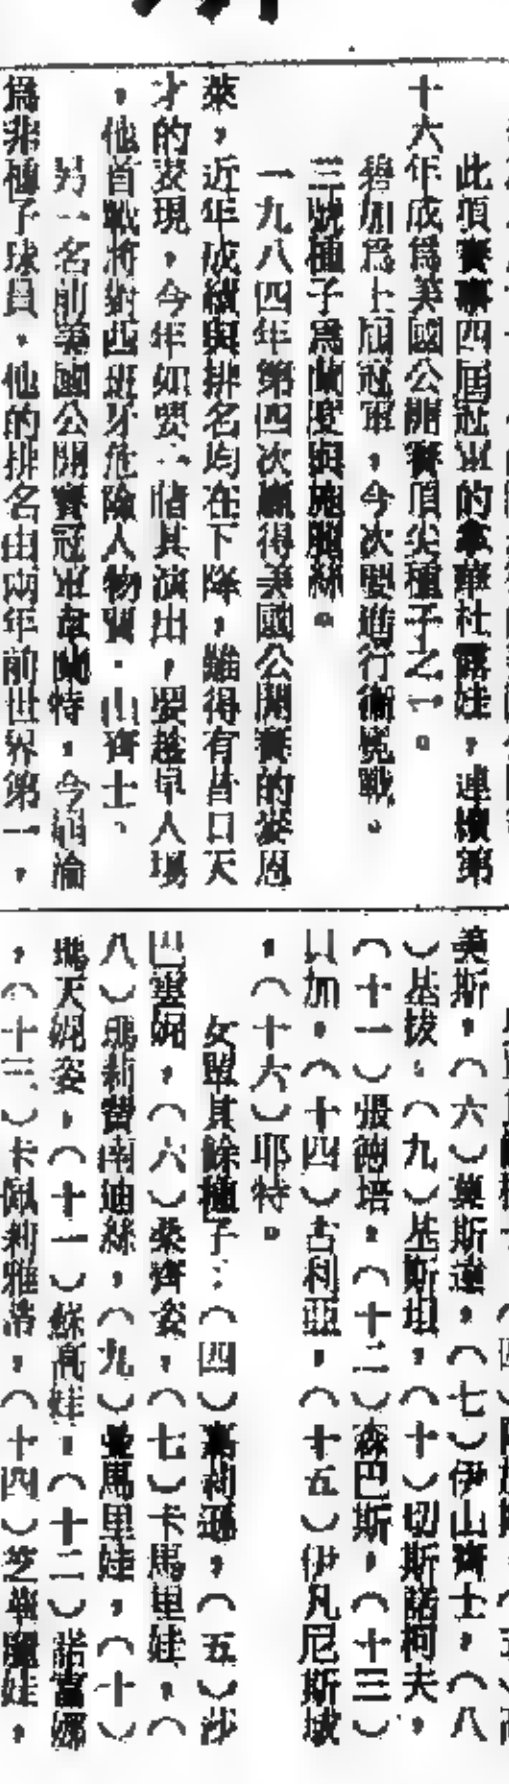 此項賽事四屆冠軍的拿華杜露娃，連續第
十六年成爲美國公開賽頂尖種子之一。
碧加爲上屆冠軍，今次要進行衞冕戰。
三號種子爲蘭度與施服絲。
一九八四年第四次贏得美國公開賽的麥恩
萊，近年成績與排名均在下降，雖得有昔日天
才的表現，今年如要一睹其演出，要趁早入場
，他首戰將對西班牙危險人物賀·山齊士、
另一名前美國公開賽冠軍韋蘭特，今屆淪
爲非種子球員，他的排名由兩年前世界第一，
美斯，（六）莫斯達，（七）伊山齊士，（八
）基拔，（九）基斯坦，（十）切斯諾柯夫，
（十一）張德培，（十二）森巴斯，（十三）
貝加，（十四）古利亞，（十五）伊凡尼斯域
，（十六）耶特。
女單其餘種子：（四）嘉利遜，（五）沙
巴雲妮，（六）桑齊姿，（七）卡馬里娃，（
八）馬莉費南迪絲，（九）曼馬里娃，（十）
瑪天妮姿，（十一）蘇高娃，（十二）諾富娜
，（十三）卡佩利雅蒂，（十四）芝華麗娃，